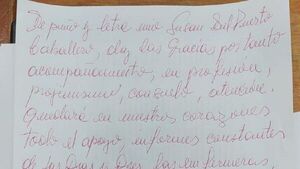 De puño y letra una Susan Del Puerto
Caballero, doy las Gracias por tanto
acompañamiento, en profesión,
profesionismo, consuelo, atención.
Quedará en nuestros corazones
todo el apoyo, informes constantes
de las Dras y Dres, las enfermeras,